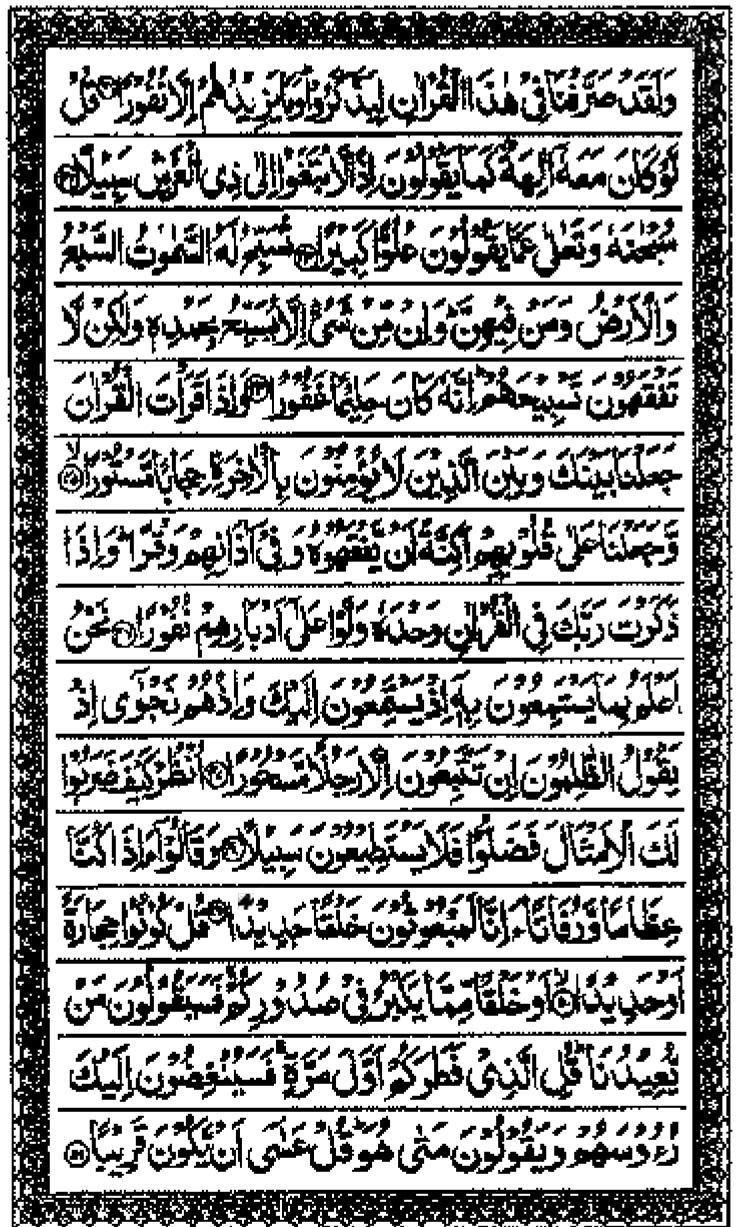 وَلَقَدْ صَرَّفْنَا فِیْ هٰذَا الْقُرْاٰنِ لِیَذَّكَّرُوْا وَمَا یَزِیْدُهُمْ اِلَّا نُفُوْرًا ﴿۴۱﴾ قُلْ
لَّوْ كَانَ مَعَهٗۤ اٰلِهَةٌ كَمَا یَقُوْلُوْنَ اِذًا لَّابْتَغَوْا اِلٰی ذِی الْعَرْشِ سَبِیْلًا ﴿۴۲﴾
سُبْحٰنَهٗ وَتَعٰلٰی عَمَّا یَقُوْلُوْنَ عُلُوًّا كَبِیْرًا ﴿۴۳﴾ تُسَبِّحُ لَهُ السَّمٰوٰتُ السَّبْعُ
وَالْاَرْضُ وَمَنْ فِیْهِنَّ ؕ وَاِنْ مِّنْ شَیْءٍ اِلَّا یُسَبِّحُ بِحَمْدِهٖ وَلٰكِنْ لَّا
تَفْقَهُوْنَ تَسْبِیْحَهُمْ ؕ اِنَّهٗ كَانَ حَلِیْمًا غَفُوْرًا ﴿۴۴﴾ وَاِذَا قَرَاْتَ الْقُرْاٰنَ
جَعَلْنَا بَیْنَكَ وَبَیْنَ الَّذِیْنَ لَا یُؤْمِنُوْنَ بِالْاٰخِرَةِ حِجَابًا مَّسْتُوْرًا ﴿۴۵﴾ۙ
وَّجَعَلْنَا عَلٰی قُلُوْبِهِمْ اَكِنَّةً اَنْ یَّفْقَهُوْهُ وَفِیْۤ اٰذَانِهِمْ وَقْرًا ؕ وَاِذَا
ذَكَرْتَ رَبَّكَ فِی الْقُرْاٰنِ وَحْدَهٗ وَلَّوْا عَلٰۤی اَدْبَارِهِمْ نُفُوْرًا ﴿۴۶﴾ نَحْنُ
اَعْلَمُ بِمَا یَسْتَمِعُوْنَ بِهٖۤ اِذْ یَسْتَمِعُوْنَ اِلَیْكَ وَاِذْ هُمْ نَجْوٰۤی اِذْ
یَقُوْلُ الظّٰلِمُوْنَ اِنْ تَتَّبِعُوْنَ اِلَّا رَجُلًا مَّسْحُوْرًا ﴿۴۷﴾ اُنْظُرْ كَیْفَ ضَرَبُوْا
لَكَ الْاَمْثَالَ فَضَلُّوْا فَلَا یَسْتَطِیْعُوْنَ سَبِیْلًا ﴿۴۸﴾ وَقَالُوْۤا ءَاِذَا كُنَّا
عِظَامًا وَّرُفَاتًا ءَاِنَّا لَمَبْعُوْثُوْنَ خَلْقًا جَدِیْدًا ﴿۴۹﴾ قُلْ كُوْنُوْا حِجَارَةً
اَوْ حَدِیْدًا ﴿۵۰﴾ۙ اَوْ خَلْقًا مِّمَّا یَكْبُرُ فِیْ صُدُوْرِكُمْ ۚ فَسَیَقُوْلُوْنَ مَنْ
یُّعِیْدُنَا ؕ قُلِ الَّذِیْ فَطَرَكُمْ اَوَّلَ مَرَّةٍ ۚ فَسَیُنْغِضُوْنَ اِلَیْكَ
رُءُوْسَهُمْ وَیَقُوْلُوْنَ مَتٰی هُوَ ؕ قُلْ عَسٰۤی اَنْ یَّكُوْنَ قَرِیْبًا ﴿۵۱﴾